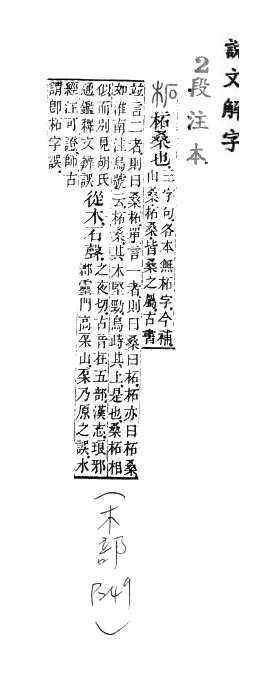 說文解字
2段注本
柘桑也。
三字句各本無柘字。今補。
山桑柘桑皆桑之屬古書
竝言二者則曰桑柘單言一者則曰桑曰柘。柘亦曰柘桑。
如淮南注烏號云柘桑其木堅勁烏峙其上是也桑柘相
似而別見胡氏
通鑑釋文辨誤
從木。石聲。
之夜切古音在五部漢志琅邪
郡靈門高山。乃原之誤。水
經注可證師古
請卽柘字誤。
(木部 B49)